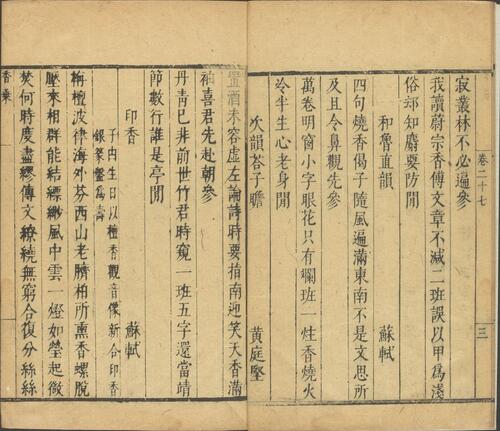 卷二十七
三
寂叢林不必遍參
我讀蔚宗香傳文章不減二班誤以甲為淺
俗却知麝要防閒
和魯直韻 蘇軾
四句燒香偈子隨風遍滿東南不是文思所
及且令鼻觀先參
萬卷明窗小字眼花只有斕班一炷香燒火
冷半生心老身閒
次韻荅子瞻 黃庭堅
置酒未容虛左論詩時要指南迎笑天香滿
袖喜君先赴朝參
丹青已非前世竹君時窺一班五字還當靖
節數行誰是亭閒
印香
子由生日以檀香觀音像新合印香
銀篆盤為壽 蘇軾
栴檀波律海外芬西山老臍柏所熏香螺脫
黶來相群能結縹緲風中雲一燈如螢起微
焚何時度盡繆傳文繚繞無窮合復分絲絲
香乘